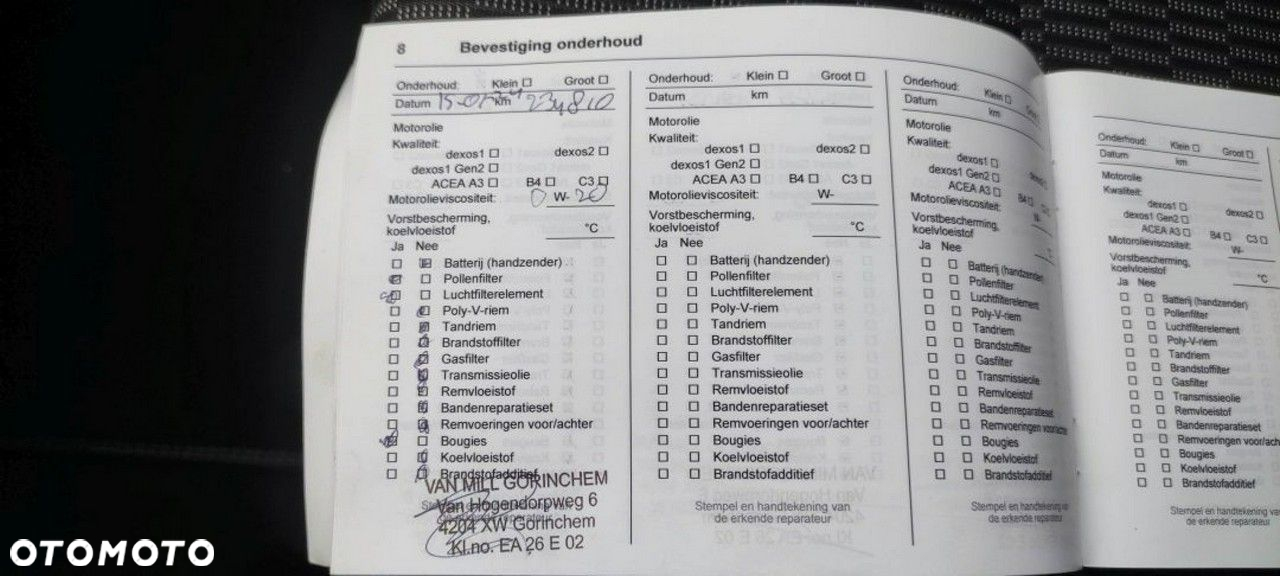 8 Bevestiging onderhoud
Onderhoud: Klein Groot
Datum km 234810
Motorolie
Kwaliteit:
dexos1 dexos2
dexos1 Gen2
ACEA A3 B4 C3
Motorolieviscositeit: 0 W- 20
Vorstbescherming,
koelvloeistof °C
Ja Nee
Batterij (handzender)
Pollenfilter
Luchtfilterelement
Poly-V-riem
Tandriem
Brandstoffilter
Gasfilter
Transmissieolie
Remvloeistof
Bandenreparatieset
Remvoeringen voor/achter
Bougies
Koelvloeistof
Brandstofadditief
VAN MILL GORINCHEM
Van Hogendorpweg 6
4204 XW Gorinchem
Kl.no. EA 26 E 02
Onderhoud: Klein Groot
Datum km
Motorolie
Kwaliteit:
dexos1 dexos2
dexos1 Gen2
ACEA A3 B4 C3
Motorolieviscositeit: W-
Vorstbescherming,
koelvloeistof °C
Ja Nee
Batterij (handzender)
Pollenfilter
Luchtfilterelement
Poly-V-riem
Tandriem
Brandstoffilter
Gasfilter
Transmissieolie
Remvloeistof
Bandenreparatieset
Remvoeringen voor/achter
Bougies
Koelvloeistof
Brandstofadditief
Stempel en handtekening van
de erkende reparateur
Onderhoud: Klein
Datum km
Motorolie
Kwaliteit:
dexos1
dexos1 Gen2
ACEA A3 B4
Motorolieviscositeit: W-
Vorstbescherming,
koelvloeistof
Ja Nee
Batterij (handzender
Pollenfilter
Luchtfilterelement
Poly-V-riem
Tandriem
Brandstoffilter
Gasfilter
Transmissieolie
Remvloeistof
Bandenreparatieset
Remvoeringen voor/achter
Bougies
Koelvloeistof
Brandstofadditief
Stempel en handtekening van
de erkende reparateur
Onderhoud: Klein Groot
Datum km
Motorolie
Kwaliteit:
dexos1 dexos2
dexos1 Gen2
ACEA A3 B4 C3
Motorolieviscositeit: W-
Vorstbescherming,
koelvloeistof °C
Ja Nee
Batterij (handzender)
Pollenfilter
Luchtfilterelement
Poly-V-riem
Tandriem
Brandstoffilter
Gasfilter
Transmissieolie
Remvloeistof
Bandenreparatieset
Remvoeringen voor/achter
Bougies
Koelvloeistof
Brandstofadditief
Stempel en handtekening van
de erkende reparateur
OTOMOTO